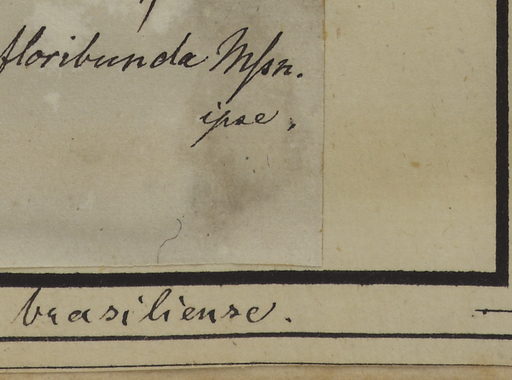 floribunda Mssn.
ipse.
brasiliense.